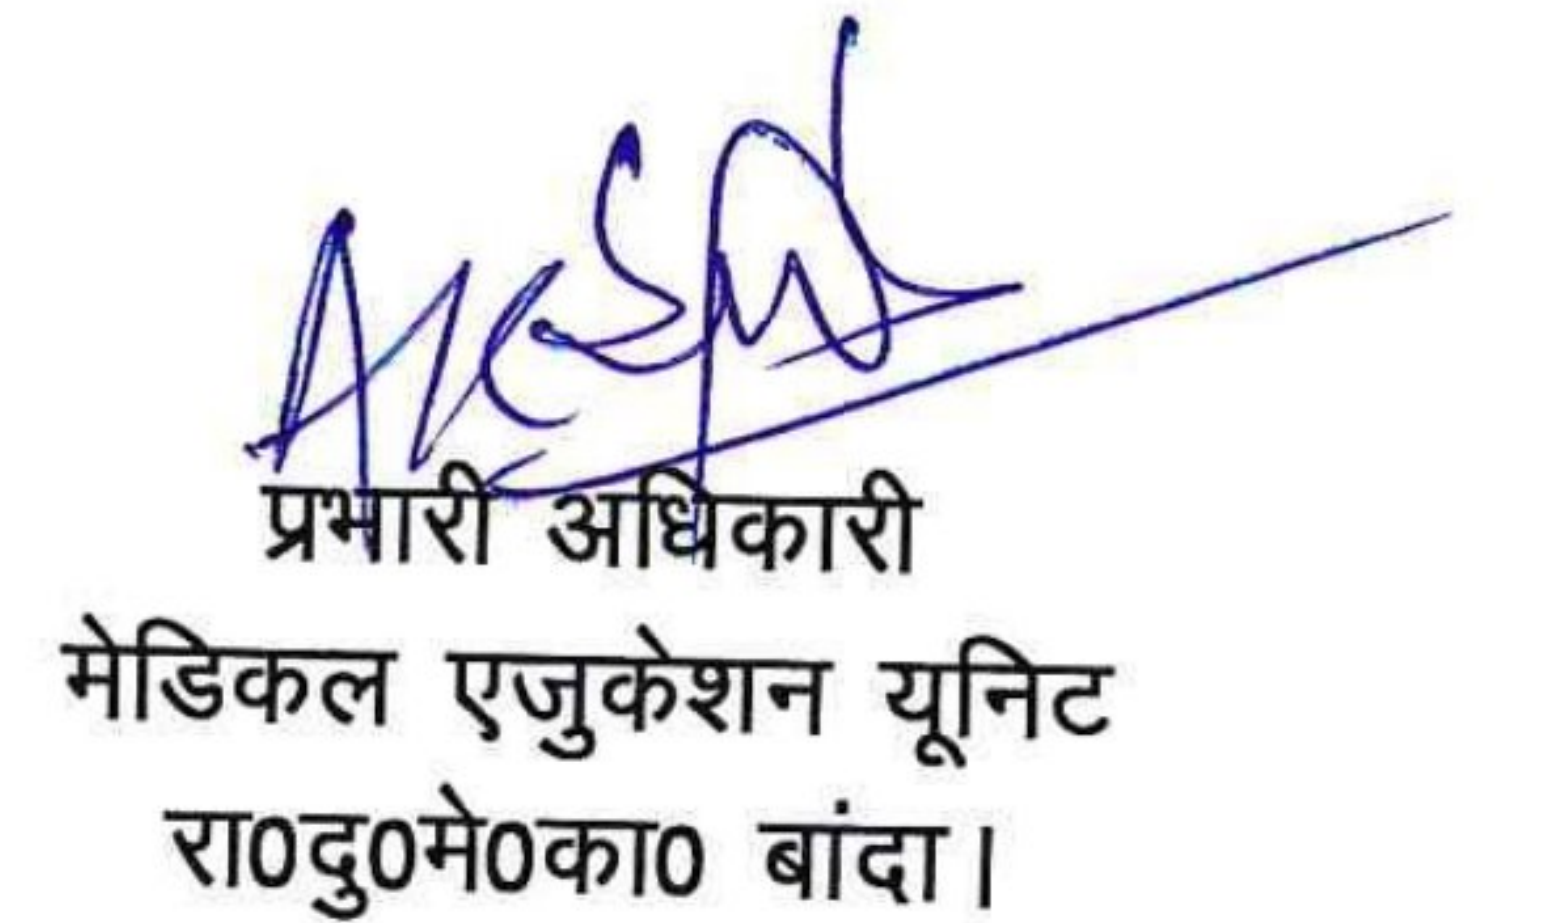 प्रभारी अधिकारी
मेडिकल एजुकेशन यूनिट
रा0दु0मे0का0 बांदा।